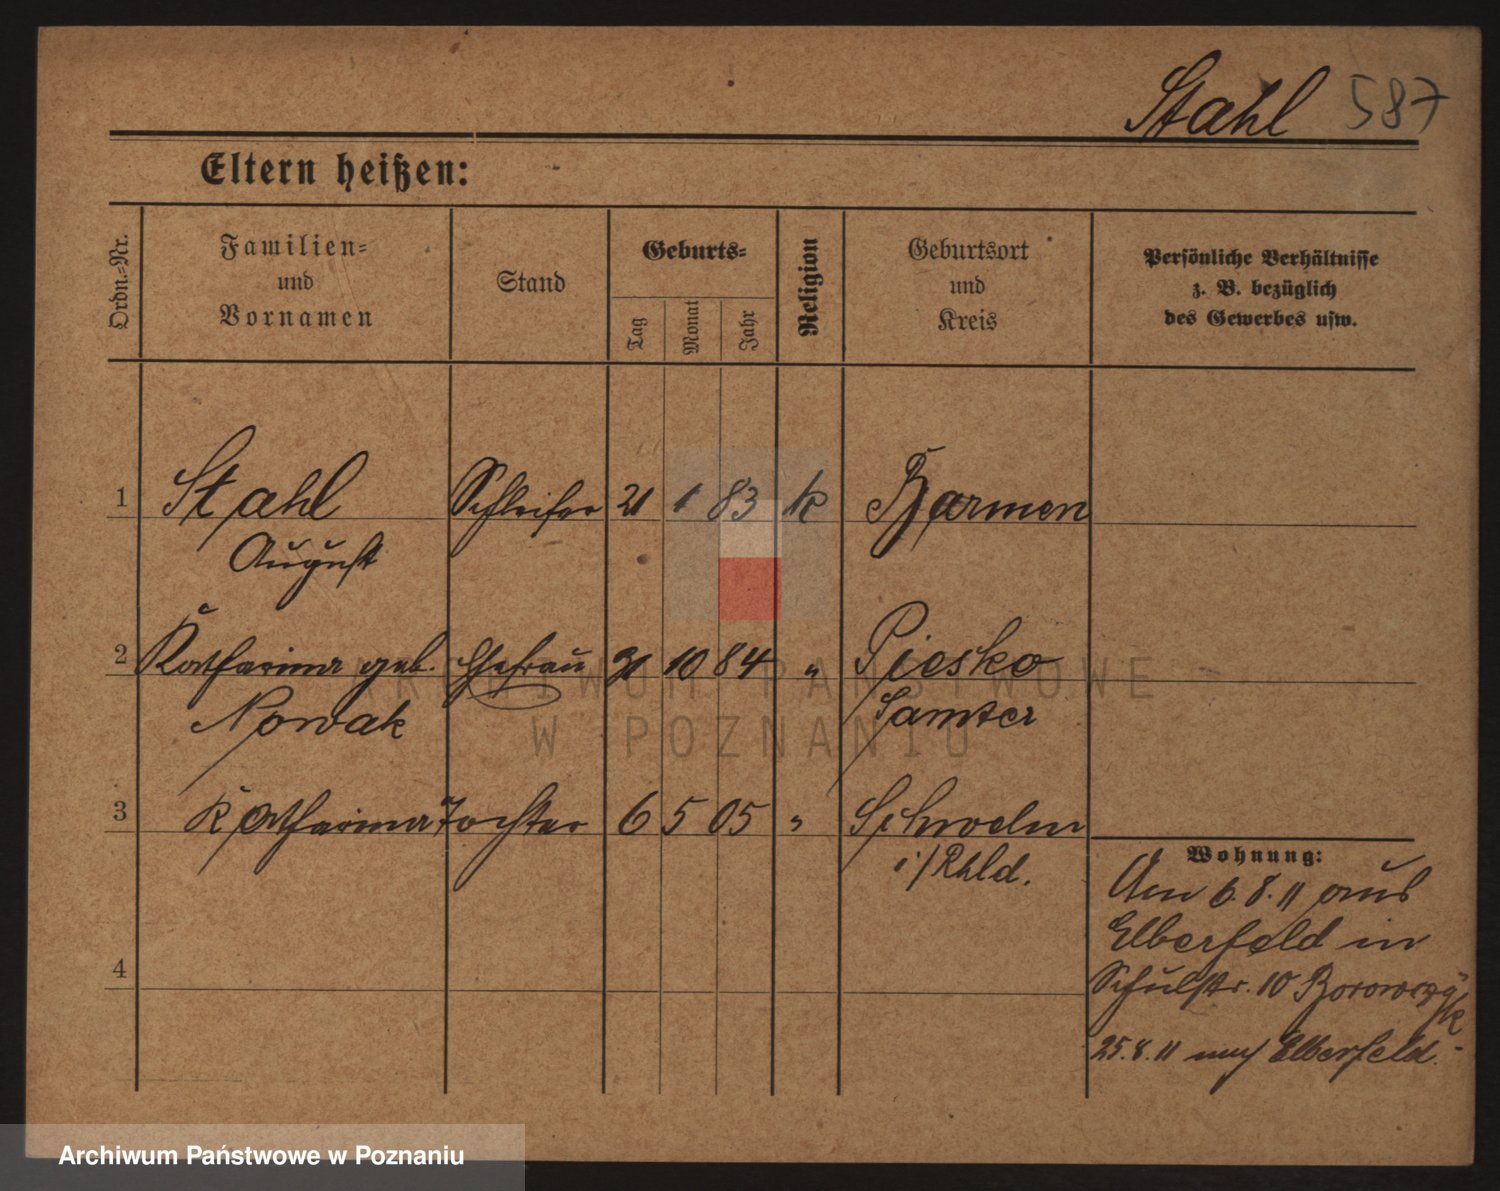 Stahl 587
Eltern heißen:
Ordn.=Nr.
Familien=
und
Vornamen
Stand
Geburts=
Tag
Monat
Jahr
Religion
Geburtsort
und
Kreis
Persönliche Verhältnisse
z. B. bezüglich
des Gewerbes usw.
1 Stahl Schleifer 21 1 83 k Barmen
August
2 Katharina geb. Ehefrau 31 10 84 " Piesko
Nowak Samter
3 Katharina Tochter 6 5 05 " Schwelm
i/Rhld.
4
Wohnung:
Am 6. 8. 11 aus
Elberfeld in
Schulstr. 10 Borowczyk
25. 8. 11 nach Elberfeld.
ARCHIWUM PAŃSTWOWE
W POZNANIU
Archiwum Państwowe w Poznaniu